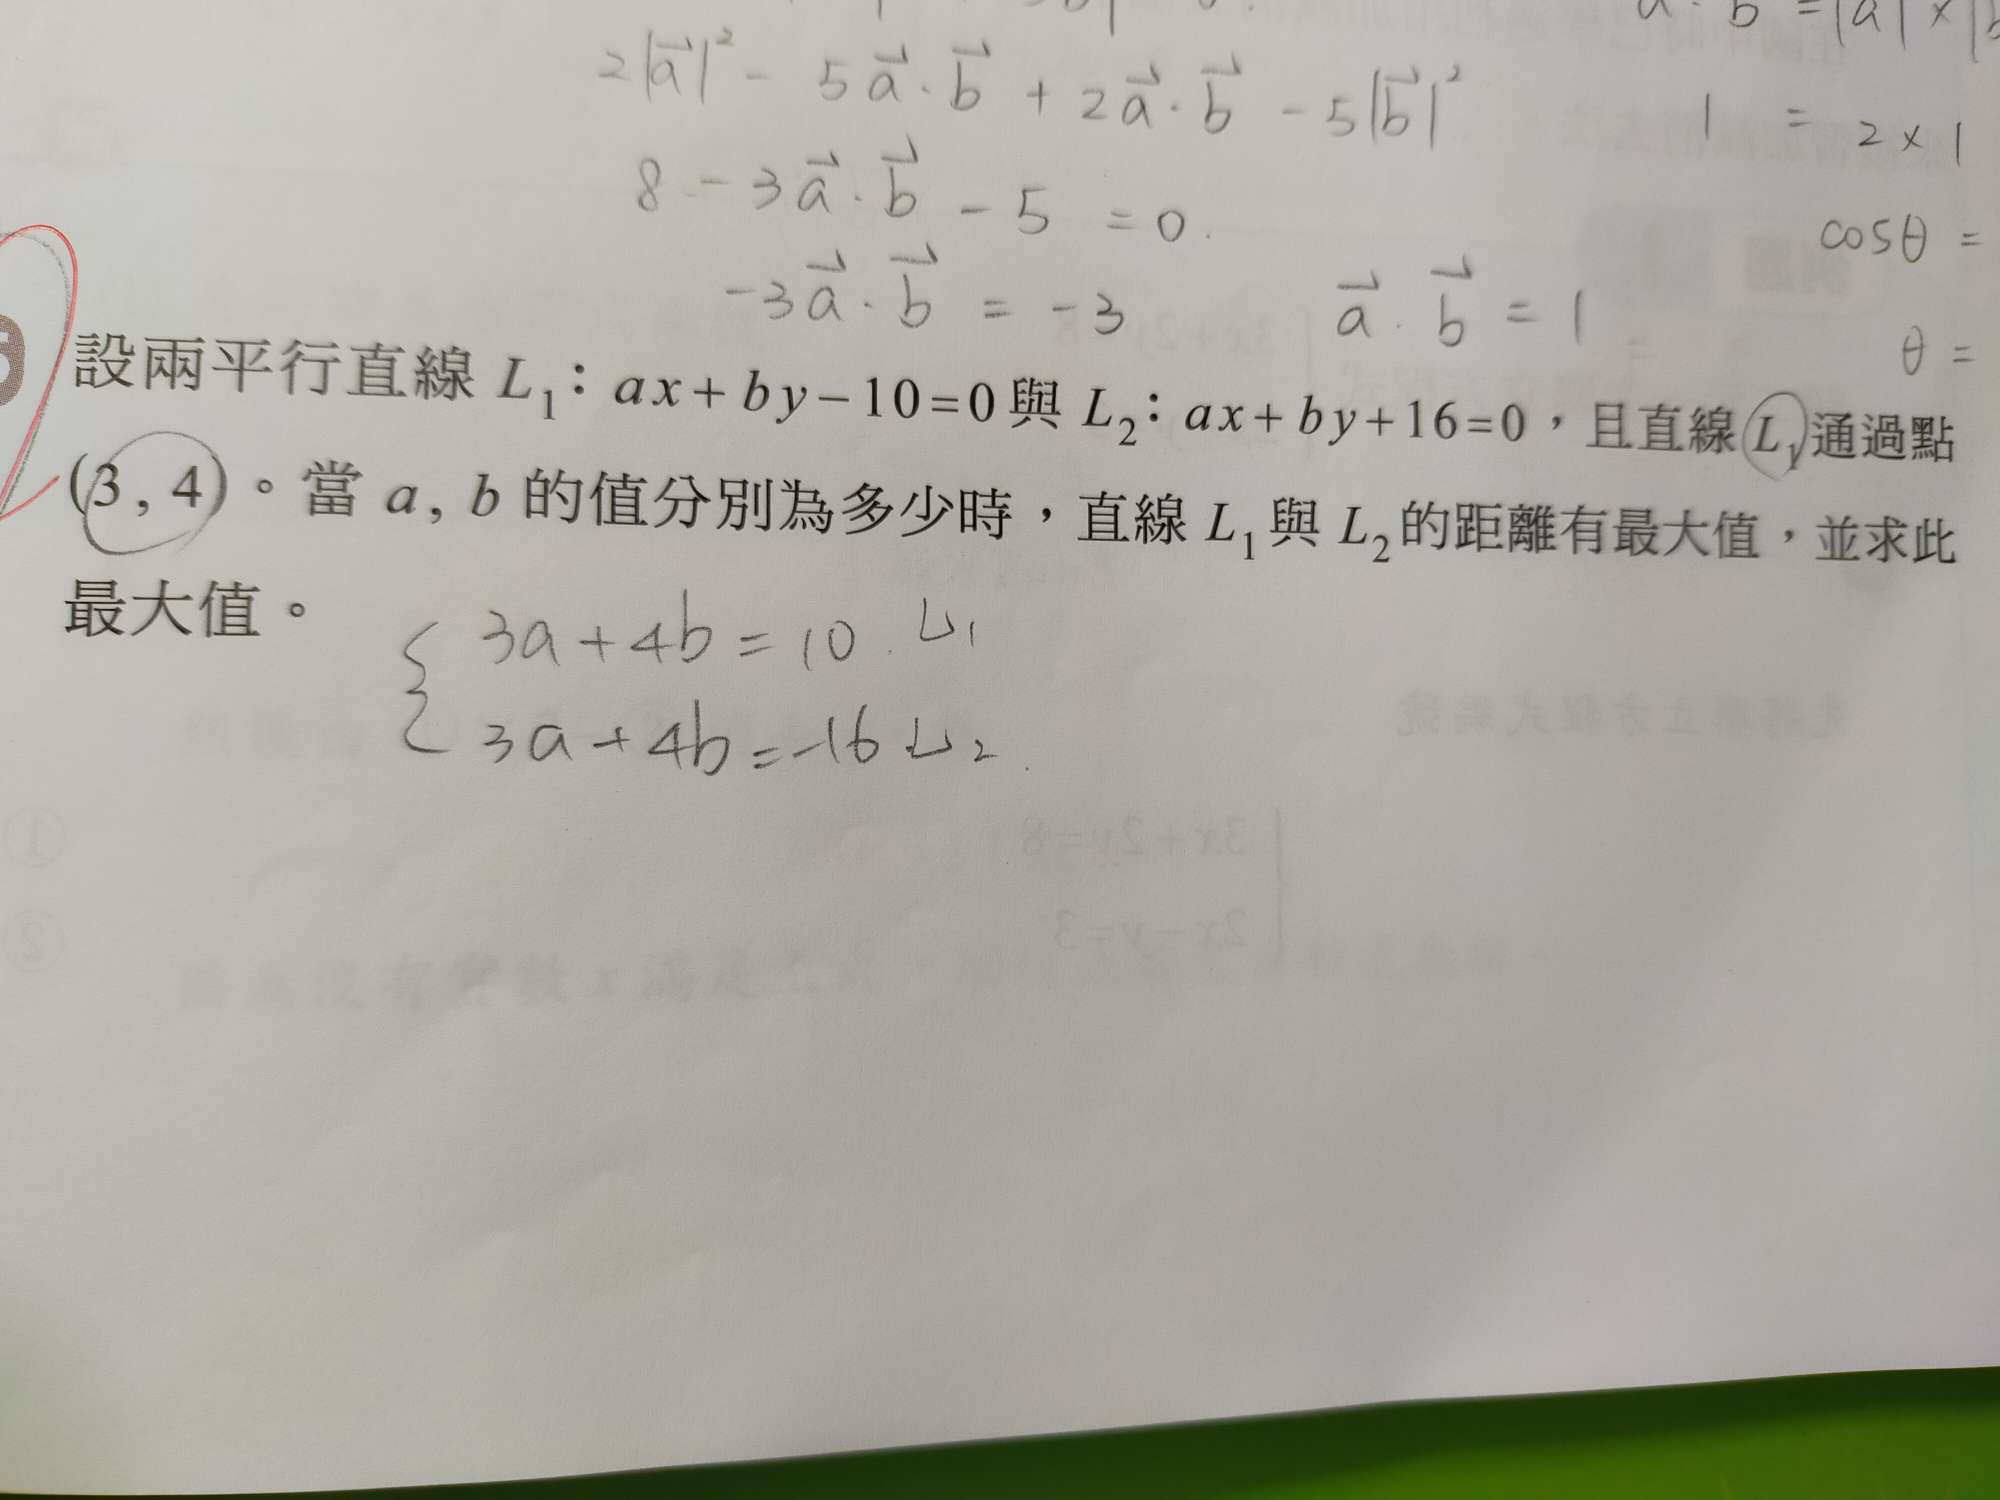 2|a⃗|² - 5a⃗·b⃗ + 2a⃗·b⃗ - 5|b⃗|²
8 - 3a⃗·b⃗ - 5 = 0
-3a⃗·b⃗ = -3 a⃗·b⃗ = 1
1 = 2 × 1
cosθ =
θ =
設兩平行直線 L₁:ax+by−10=0 與 L₂:ax+by+16=0,且直線 L₁ 通過點
(3, 4)。當 a, b 的值分別為多少時,直線 L₁ 與 L₂ 的距離有最大值,並求此
最大值。
3a+4b=10 L₁
3a+4b=-16 L₂